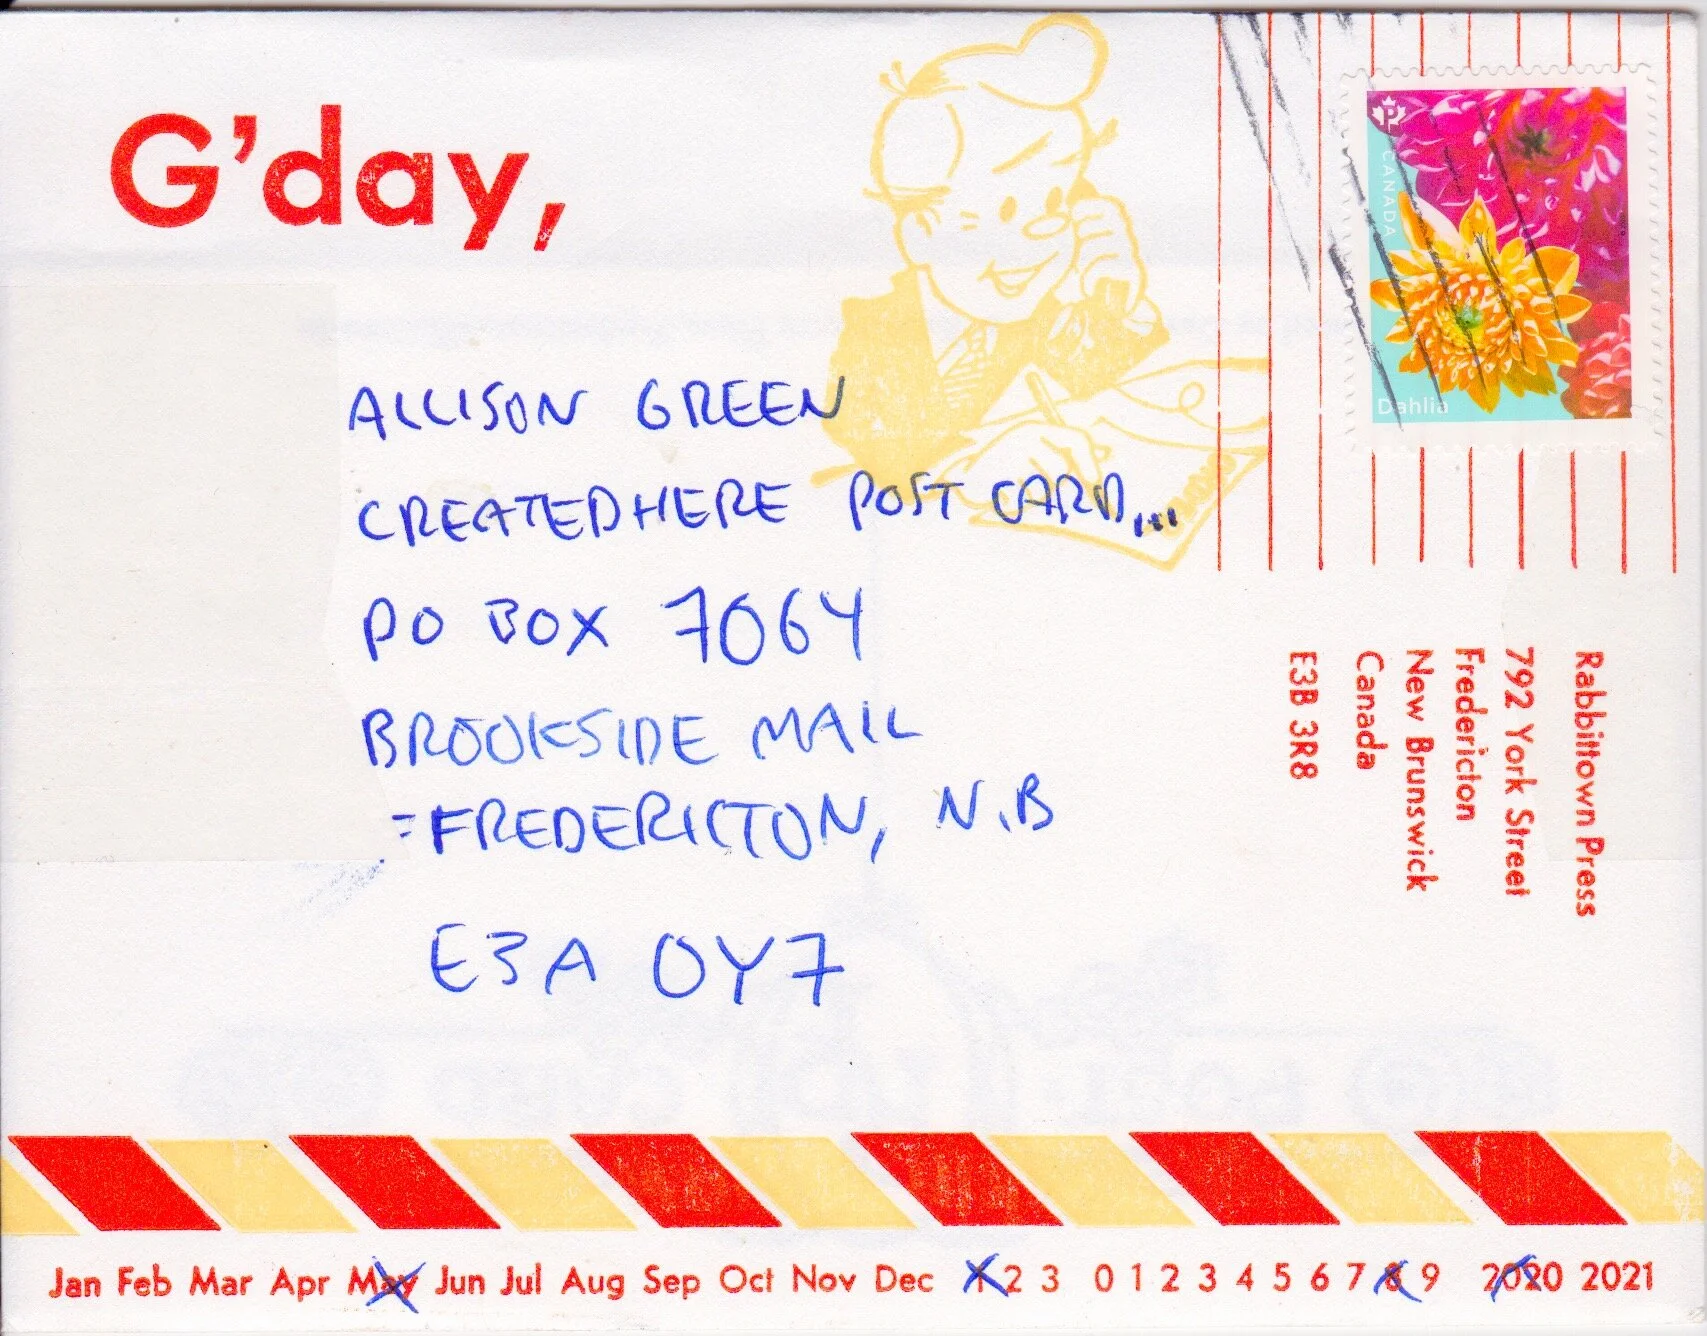 G'day,
CANADA
P
Dahlia
ALLISON GREEN
CREATEDHERE POST CARD...
PO BOX 7064
BROOKSIDE MAIL
FREDERICTON, N.B
E3A 0Y7
Rabbittown Press
792 York Street
Fredericton
New Brunswick
Canada
E3B 3R8
Jan Feb Mar Apr May Jun Jul Aug Sep Oct Nov Dec 1 2 3 0 1 2 3 4 5 6 7 8 9 2020 2021